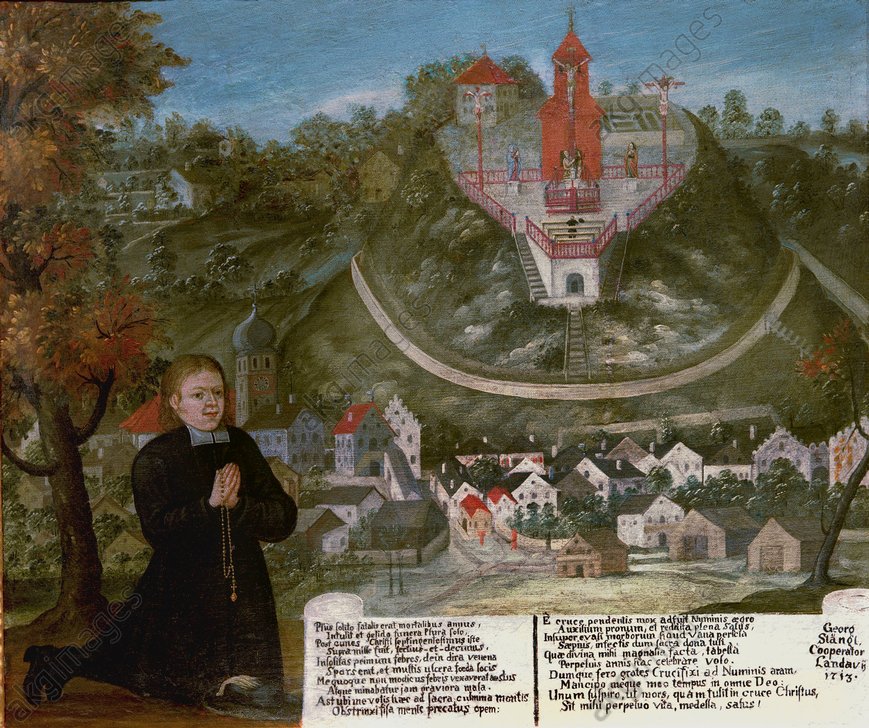 Plus solito fatalis erat mortalibus annus,
Intulit et gelido funera plura solo,
Post cunas Christi septingentesimus iste
Supra mille fuit, tertius-et-decimus.
Insolitas primum febres, dein dira venena
Sparserat, et multis ulcera foeda locis
Meque quoque non modicus febris vexaverat aestus
Atque minabatur jam graviora mala.
Ast ubi ne votis haec ad sacra culmina montis
Obstrinxi fisa mente precatus opem:
E cruce pendentis mox adfuit Numinis aegro
Auxilium pronum, et reddita plena salus,
Insuper evasi morborum haud vana pericla
Saepius, infectis dum sacra dona tuli.
Quae divina mihi magnalia facta, tabella
Perpetuis annis hac celebrare volo.
Dumque fero grates Crucifixi ad Numinis aram,
Mancipo meque meo tempus in omne Deo:
Unum suspiro, ut mors, quam tulit in cruce Christus,
Sit mihi perpetuo vita, medela, salus!
Georg
Stängl
Cooperator
Landavij
1713.
akg-images